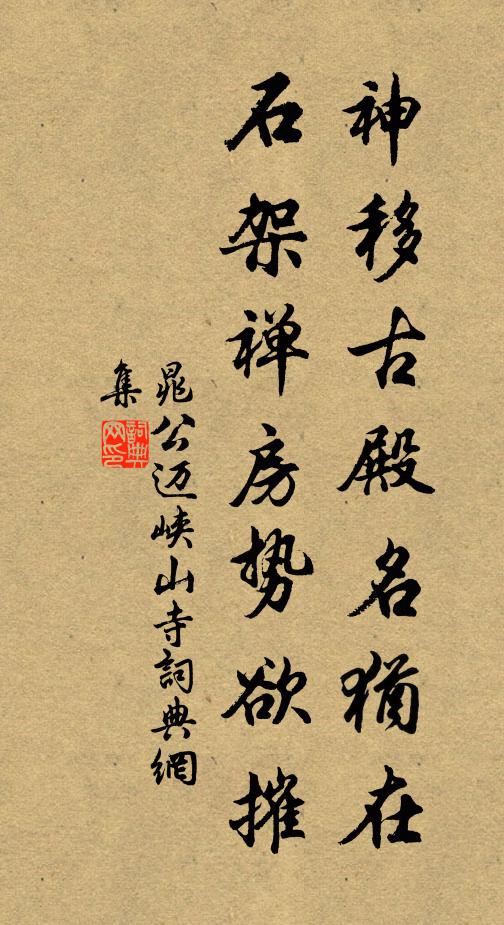 神移古殿名犹在
石架禅房势欲摧
晁公迈峡山寺詞典網
集
詞典網印